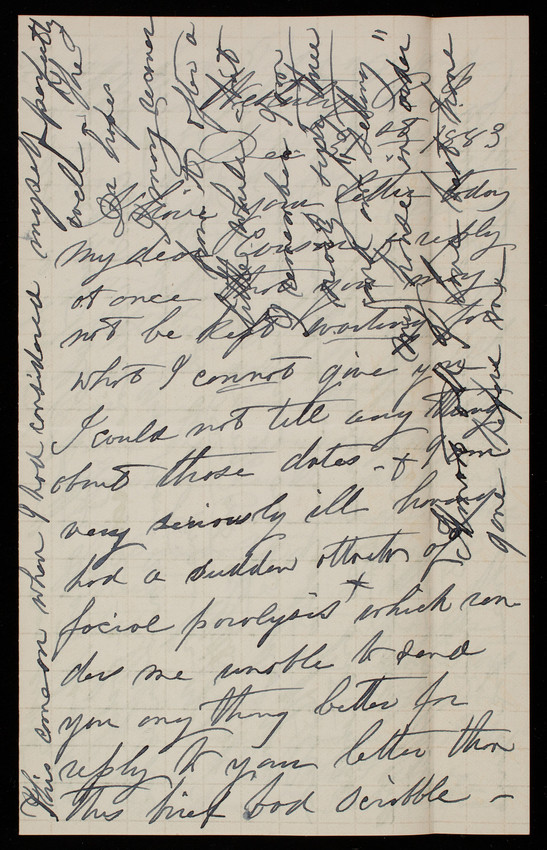 Dec 1883
I have your letter today
my dear Cousin & reply
at once that you may
not be kept waiting for
what I cannot give you
I could not tell any thing
about those dates - & I am
very seriously ill having
had a sudden attack of
facial paralysis which ren-
ders me unable to send
you any thing better for
reply to your letter than
this brief bad scribble -
This came on when I had considered myself perfectly
well - The
Dr hopes
may
for a
little while
remember
setting
my house in order
gone before me